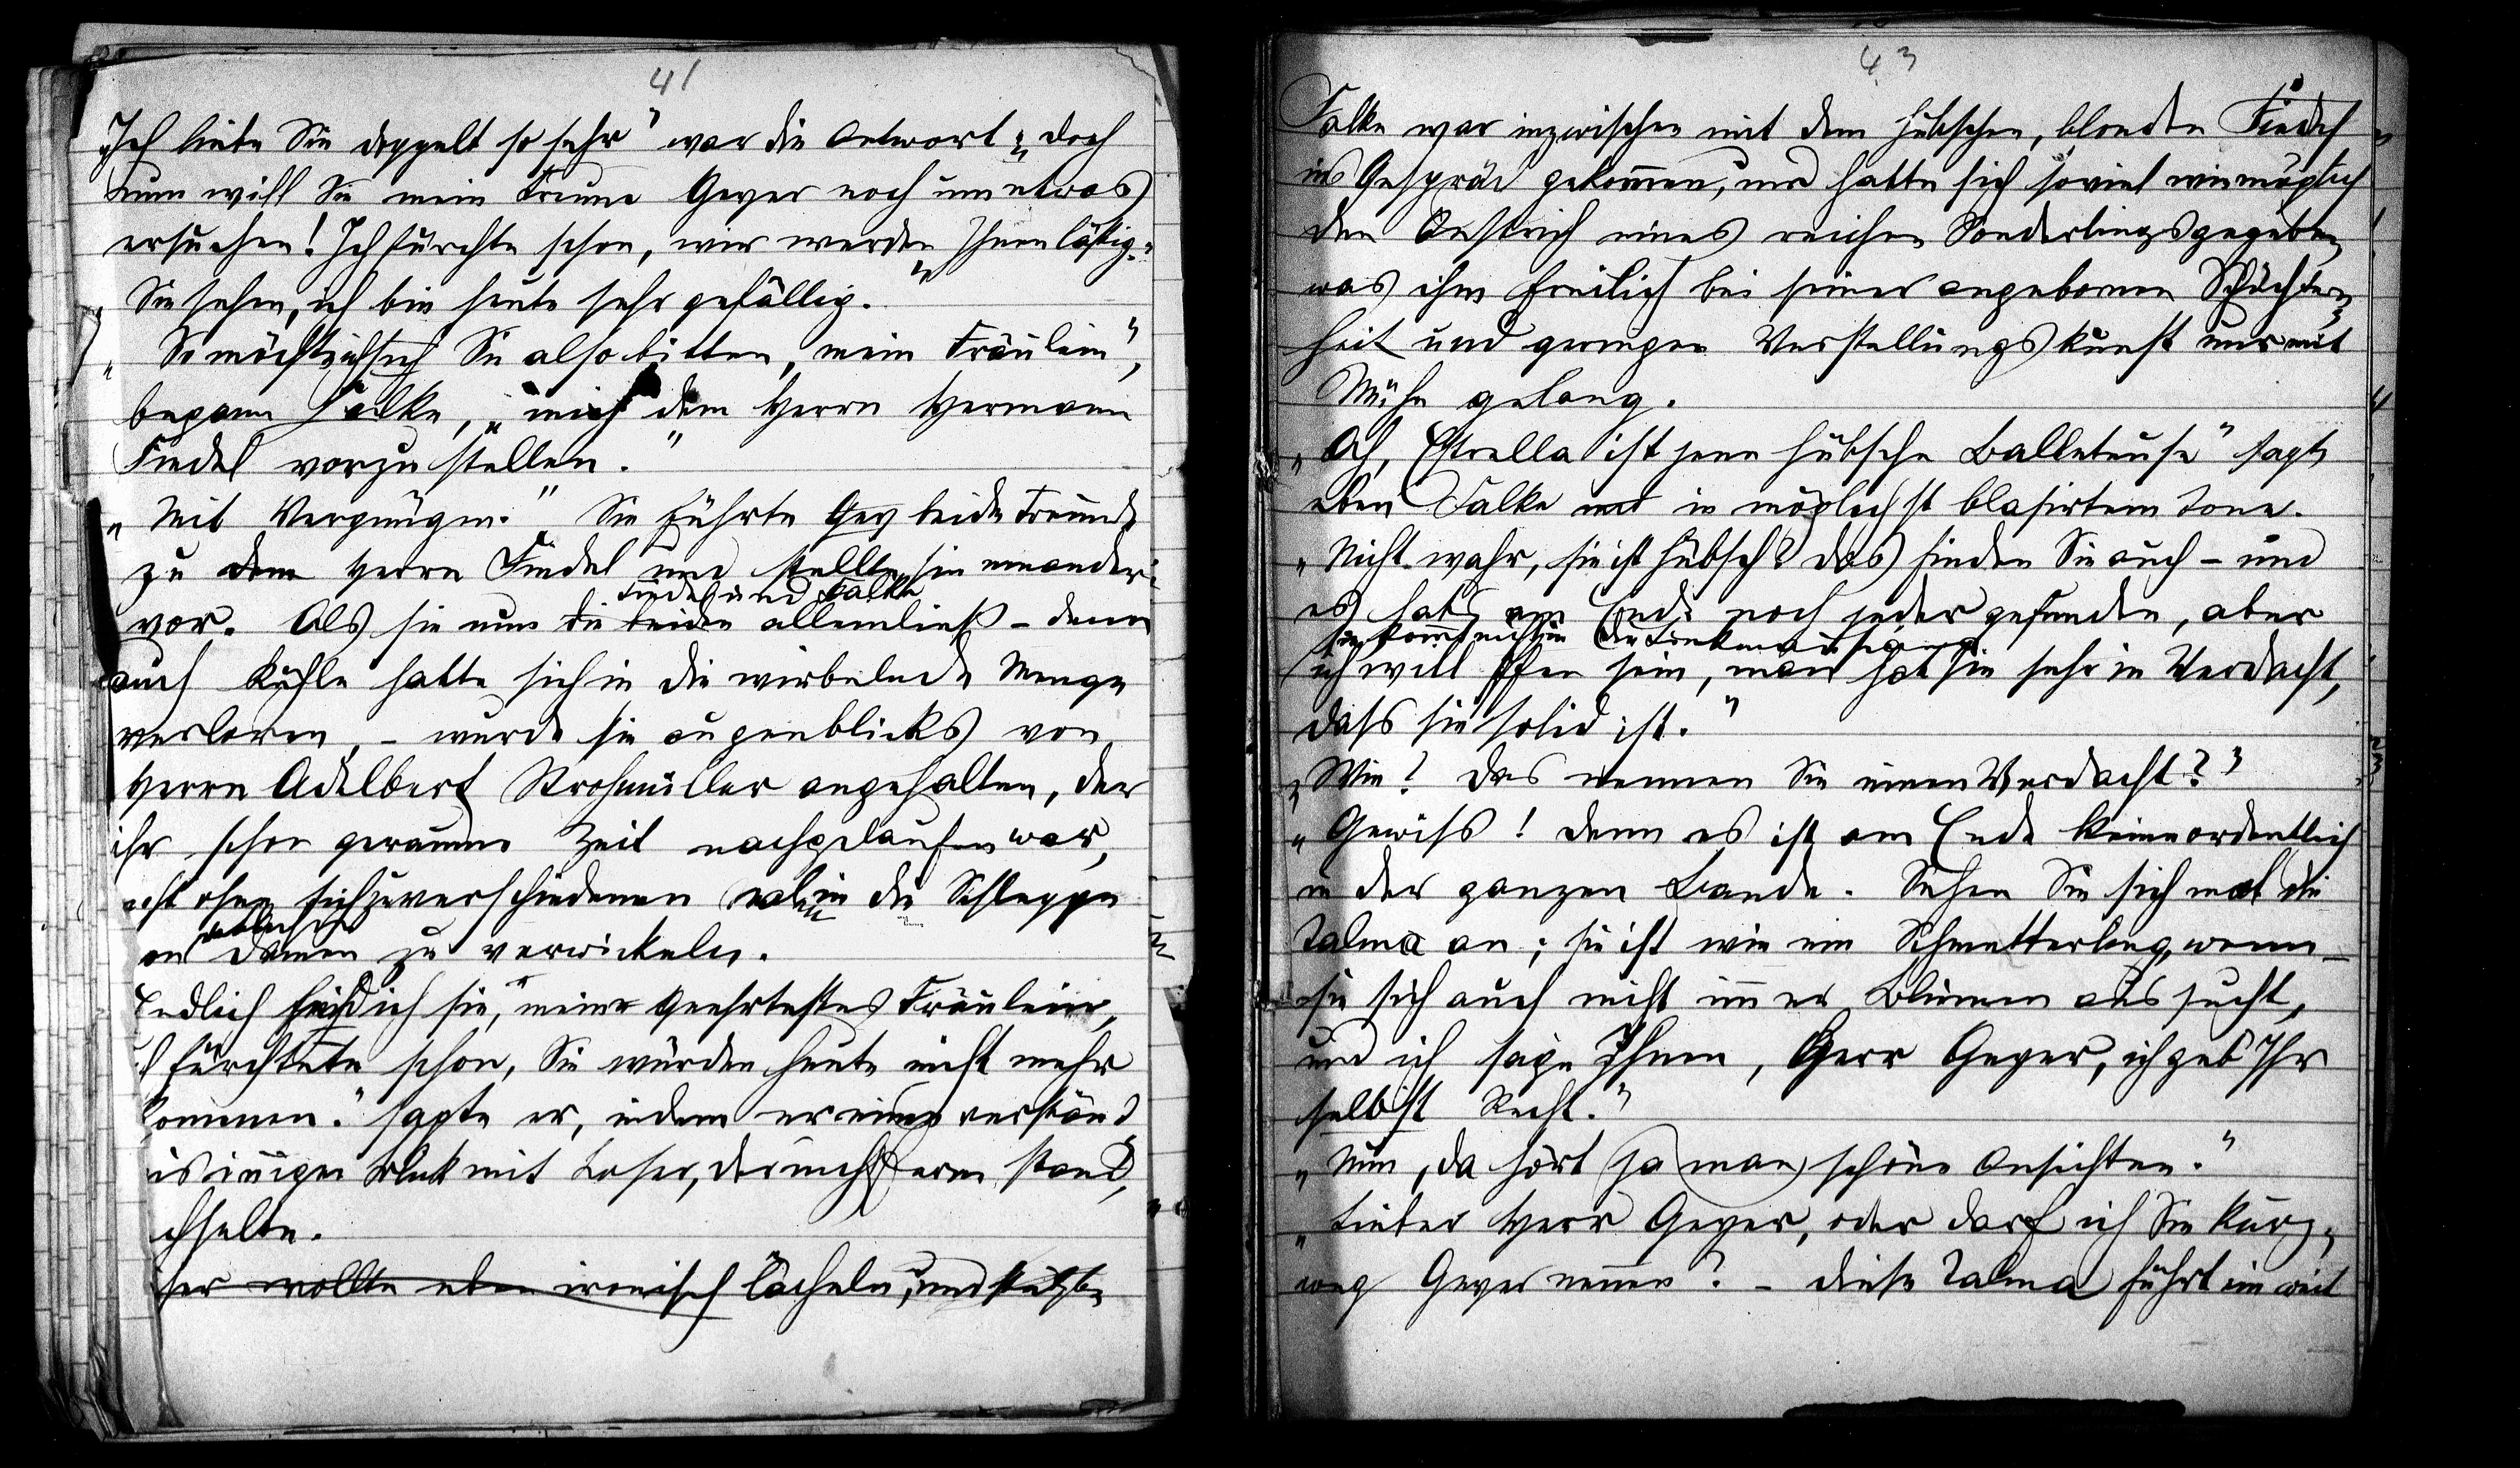 41
„Ich liebe Sie doppelt so sehr" war die Antwort „doch
nun will Sie mein Freund Geyer noch um etwas
ersuchen! Ich fürchte schon, wir werden Ihnen lästig."
„Sie sehen, ich bin heute sehr gefällig."
„So möchte ich Sie also bitten, mein Fräulein",
begann Falke, „mich dem Herrn Hermann
Findel vorzustellen."
„Mit Vergnügen." Sie führte Gey beide Freunde
zu dem Herrn Findel und stellte sie einander
Findel und Falke
vor. Als sie nun die beiden allein ließ – denn
auch Kuhle hatte sich in die wirbelnde Menge
verloren, – wurde sie augenblicks von
Herrn Adelbert Strohmüller angehalten, der
ihr schon geraume Zeit nachgelaufen war,
nicht ohne sich zu verschiedenen malen in die Schleppe
von Damen zu verwickeln.
Endlich find ich sie, mein geehrtestes Fräulein,
ich fürchtete schon, Sie würden heute nicht mehr
kommen." sagte er, indem er einen verständ
nisinnigen Blick mit Loser, der nicht fern stand,
chselte.
ser wollte eben ironisch lächeln, und
43
Falke war inzwischen mit dem hübschen, blonden Findel
ins Gespräch gekommen, und hatte sich soviel wie möglich
den Anstrich eines reichen Sonderlings gegeben,
was ihm freilich bei seiner angebornen Schüchtern-
heit und geringen Verstellungskunst nur mit
Mühe gelang.
„Ach, Estrella ist jene hübsche Balleteuse" sagte
eben Falke in möglichst blasirtem Tone.
„Nicht wahr, sie ist hübsch? Das finden Sie auch – und
es hats am Ende noch jeder gefunden, aber
sie kommt nicht in
ich will offen sein, man hat sie sehr in Verdacht,
dass sie solid ist."
„Wie? Das nennen Sie einen Verdacht?"
„Gewiss! Denn es ist am Ende keine ordentlich
in der ganzen Bande. Sehen Sie sich mal die
Talma an; sie ist wie ein Schmetterling, wenn
sie sich auch nicht immer Blumen aussucht,
und ich sage Ihnen, Herr Geyer, ich geb Ihr
selbst Recht."
„Nun, da hört ja man schöne Ansichten."
„Lieber Herr Geyer, oder darf ich Sie kurz-
weg Geyer nennen? – diese Talma führt ein weit